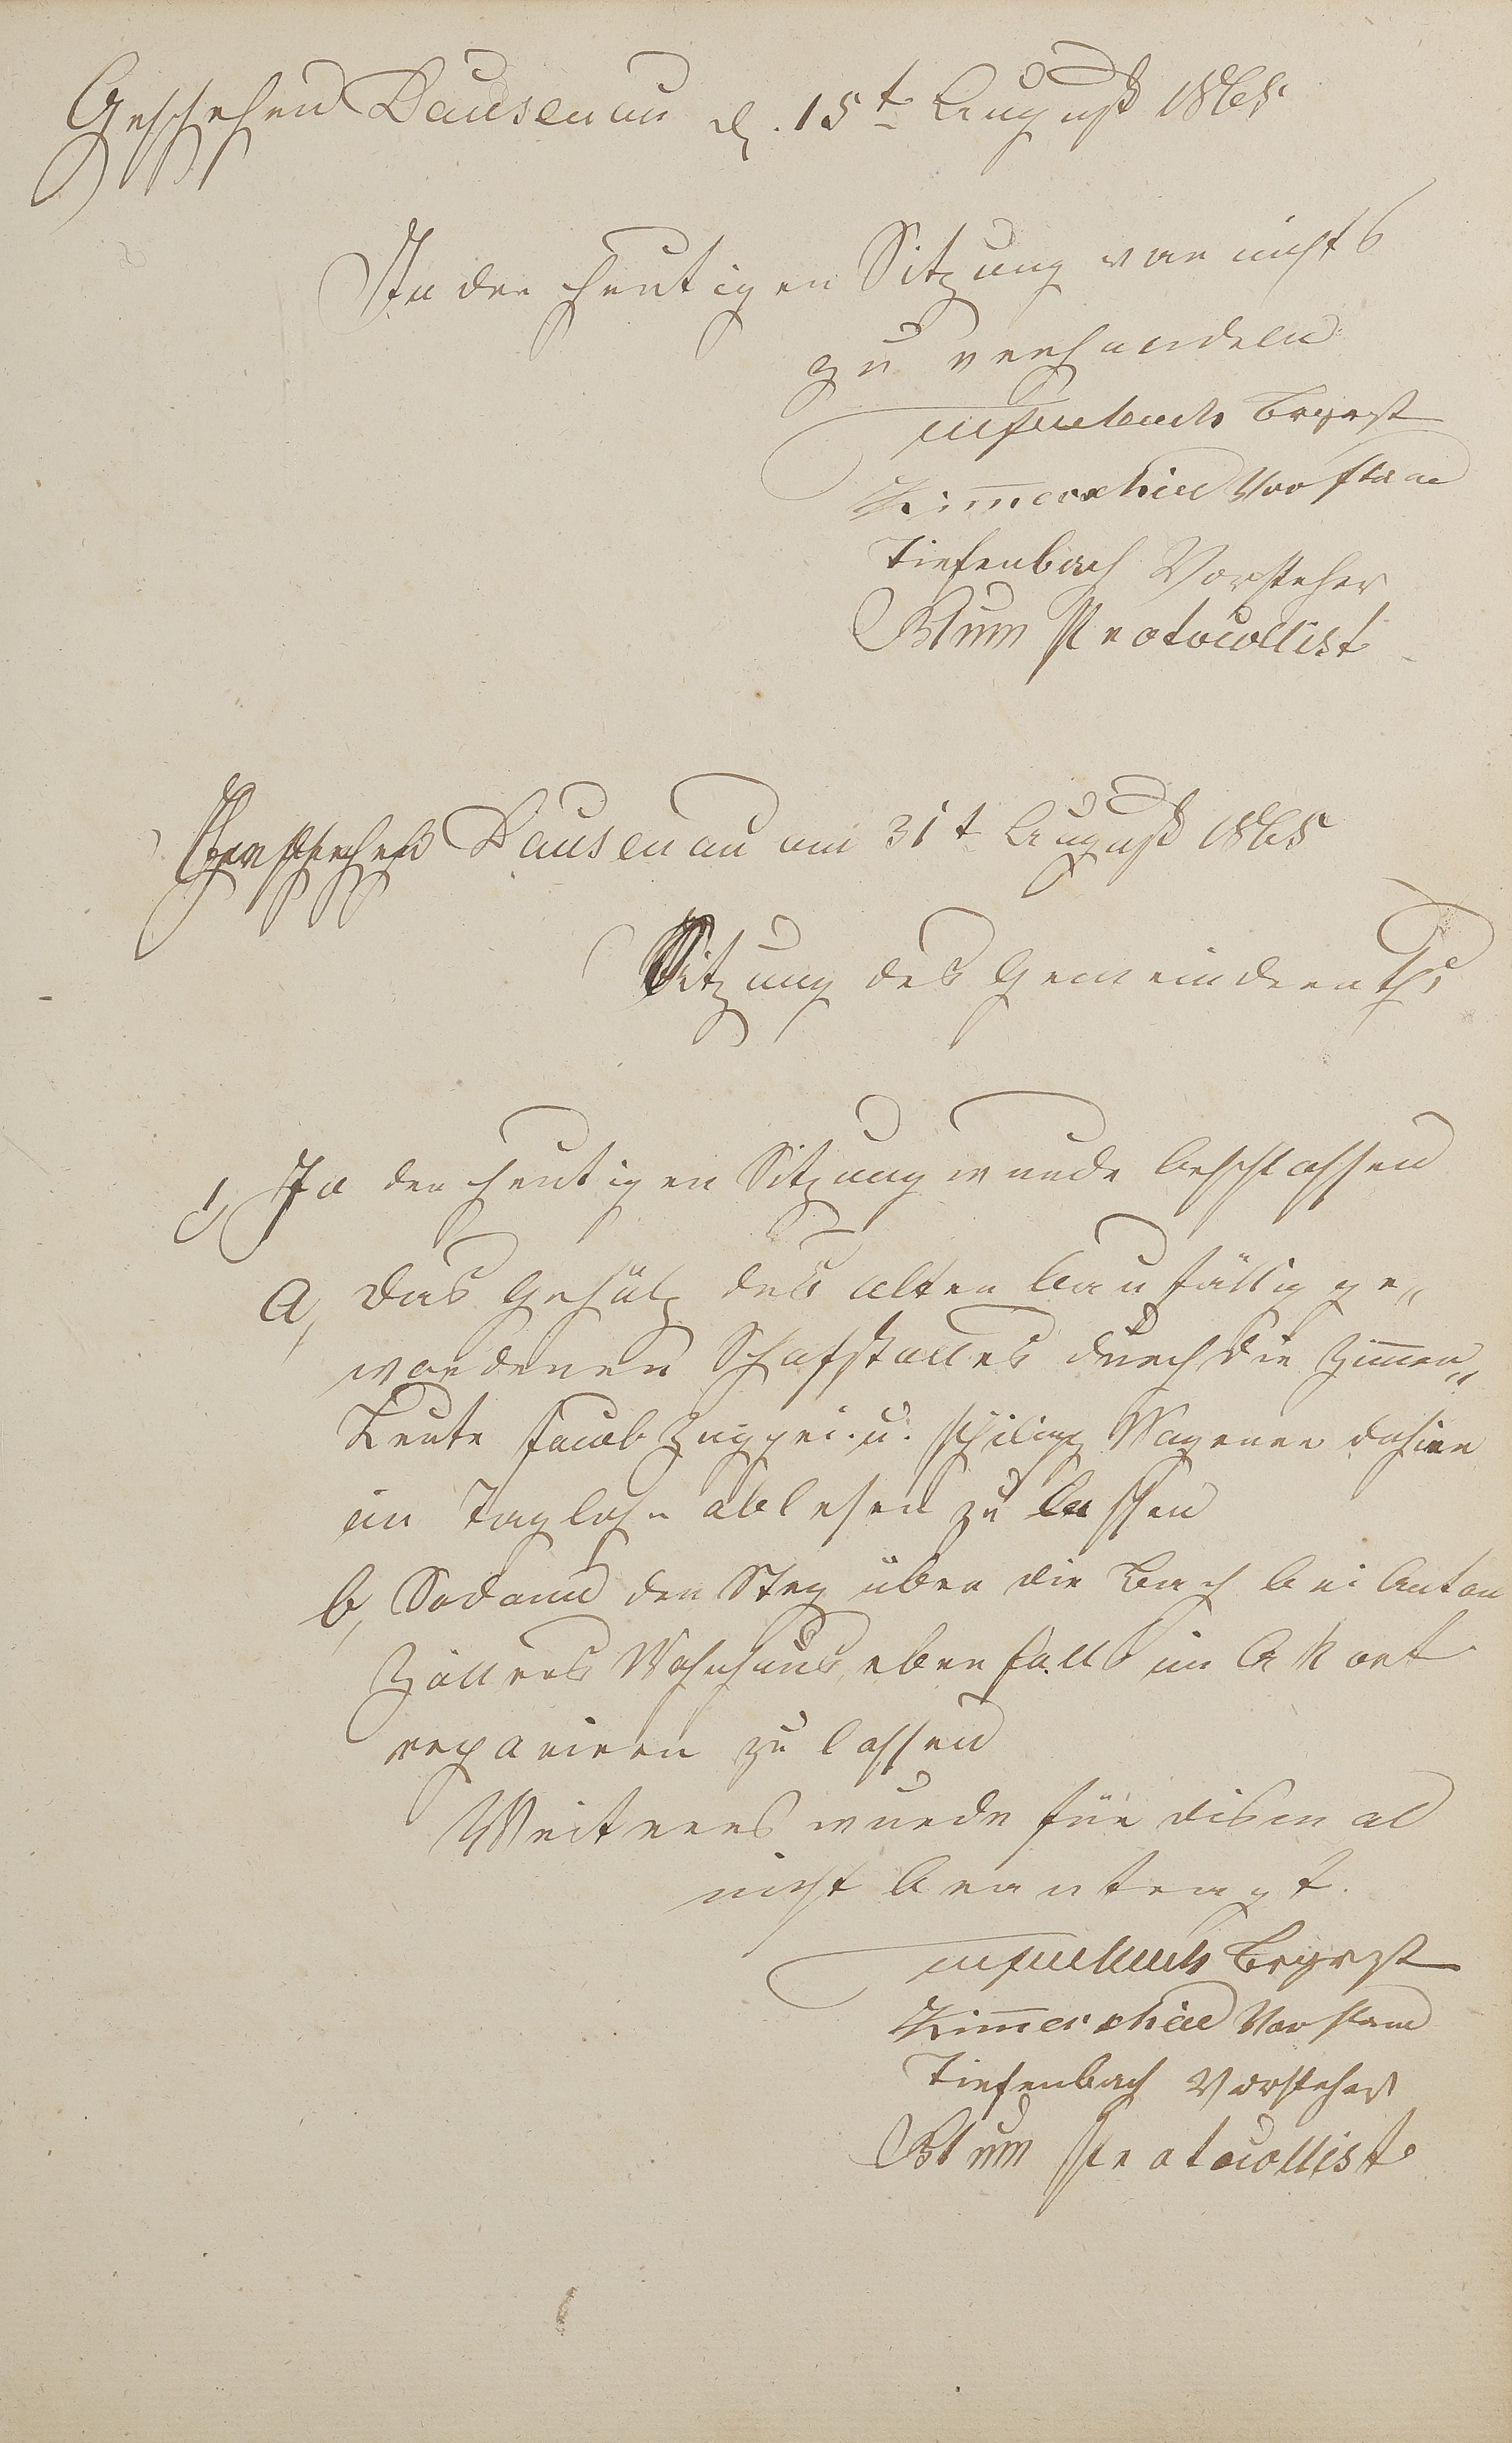 Geschehen Dausenau d. 15t August 1865
In der heutigen Sitzung war nichts
zu verhandeln
Brgrmst
Zimerschied Vorstand
Tiefenbach Vorsteher
Blum Protocollist
Geschehen Dausenau am 31t August 1865
Sitzung des Gemeinderaths
1, In der heutigen Sitzung wurde beschlossen
a, Das Gehölz des alten baufällig ge„
wordenen Schafstalles durch die Zimer„
Leute Jacob u. Philipp Wagener dahier
im Taglohn ablegen zu lassen
b, Sodann den Steg über die Bach bei Anton
Zöllers Wohnhaus ebenfalls im Akort
repariren zu lassen
Weiteres wurde für dismal
nicht beantragt.
Brgrmst
Zimerschied Vorstand
Tiefenbach Vorsteher
Blum Protocollist